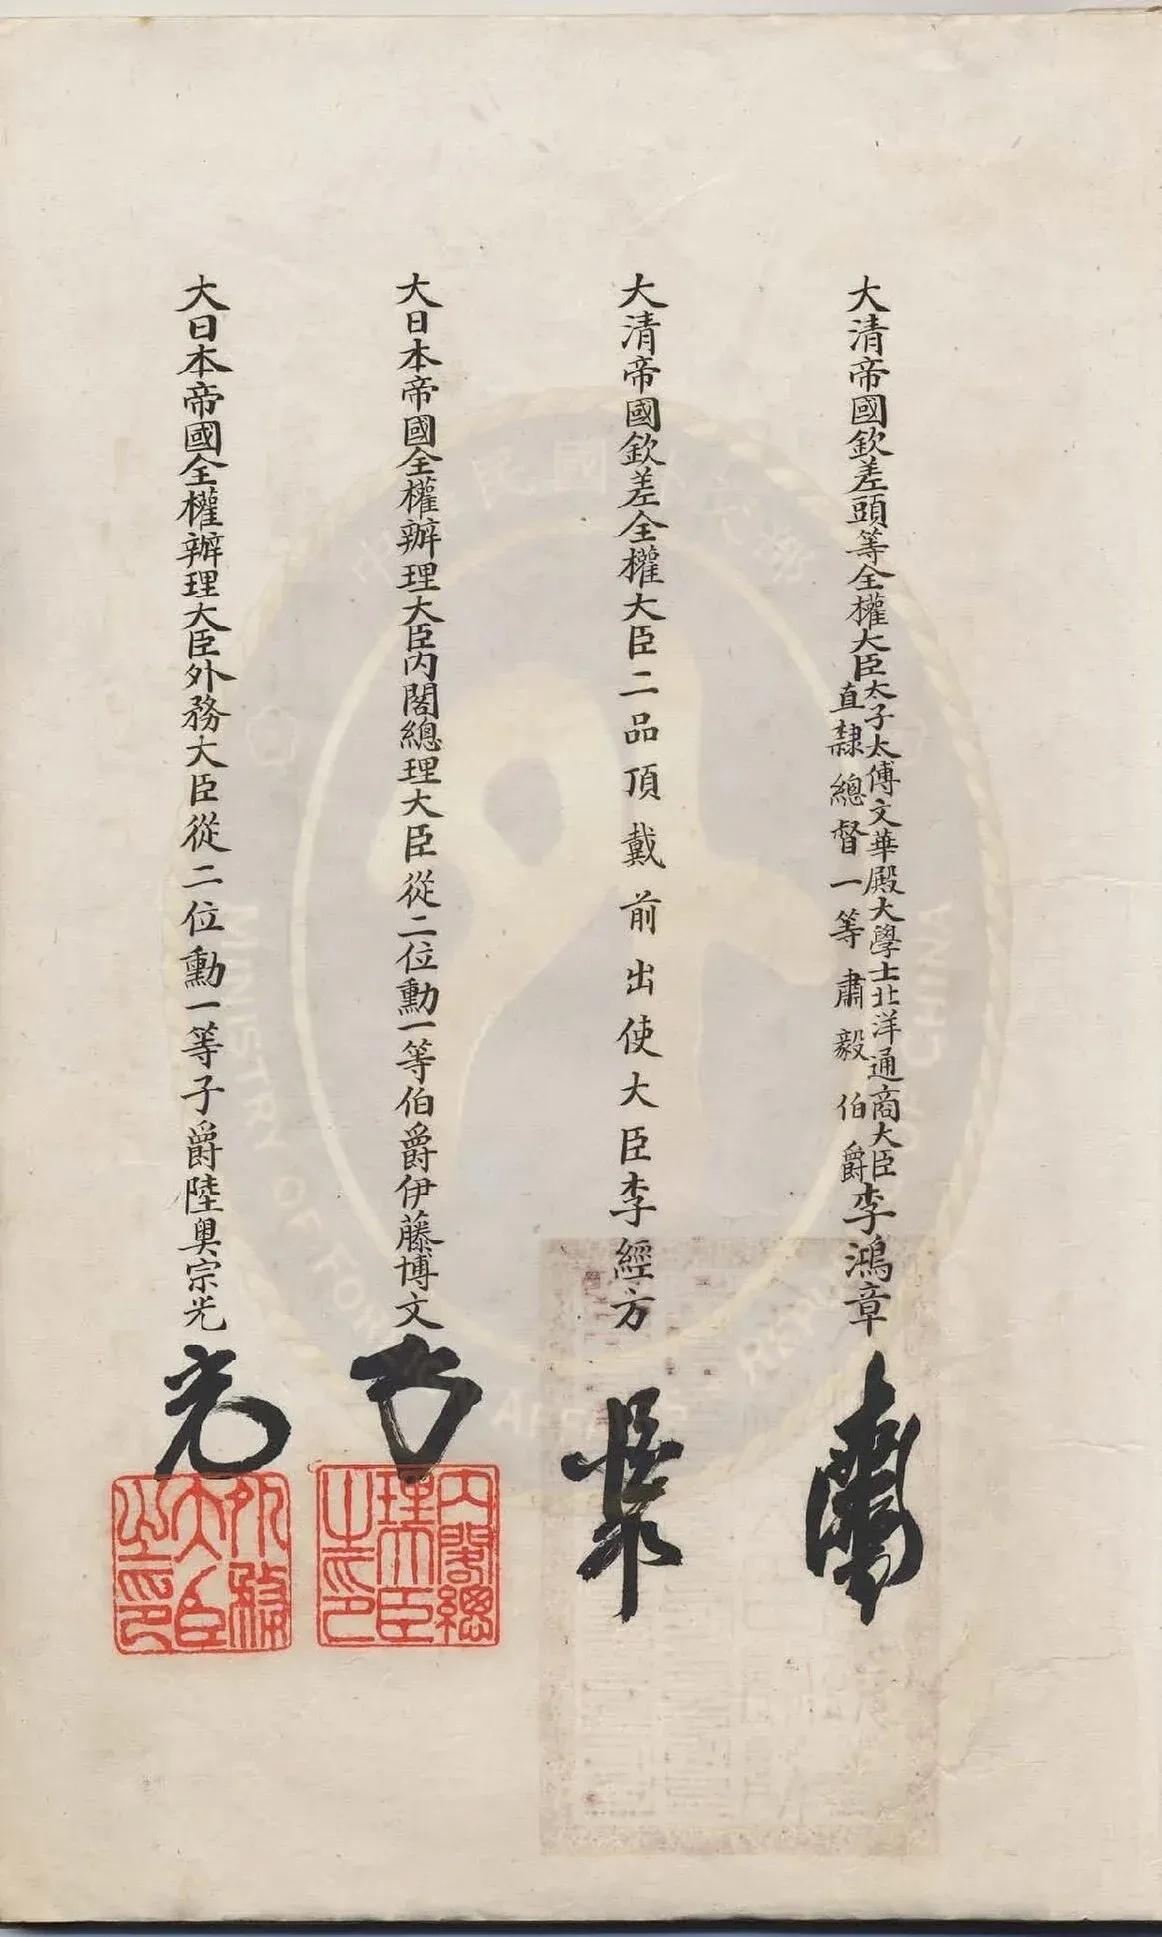 大清帝國欽差頭等全權大臣太子太傅文華殿大學士北洋通商大臣直隸總督一等肅毅伯爵李鴻章
大清帝國欽差全權大臣二品頂戴前出使大臣李經方
大日本帝國全權辦理大臣內閣總理大臣從二位勳一等伯爵伊藤博文
大日本帝國全權辦理大臣外務大臣從二位勳一等子爵陸奧宗光
內閣總理大臣之印
外務大臣之印
民國
MINISTRY OF FOREIGN AFFAIRS
REPUBLIC OF CHINA